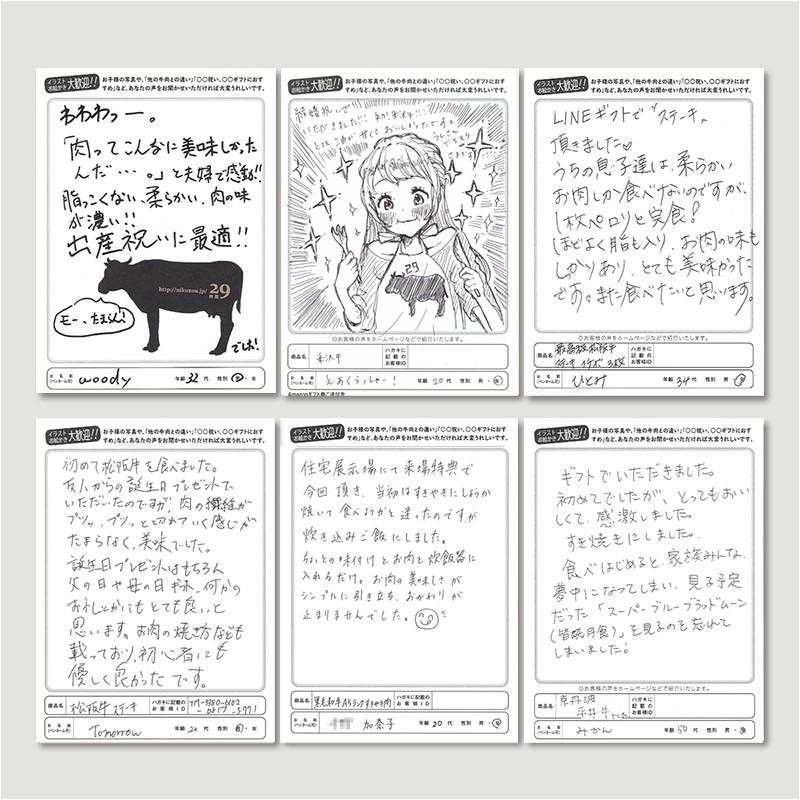 イラスト お絵かき 大歓迎!!
お子様の写真や、「他の牛肉との違い」「〇〇祝い、〇〇ギフトにおす
すめ」など、あなたの声をお聞かせいただければ大変うれしいです。
わわわっー。
「肉ってこんなに美味しかった
んだ…。」と夫婦で感動!!
脂っこくない、柔らかい、肉の味
が濃い!!
出産祝いに最適!!
http://nikuzou.jp/ 29
モー、たまらん!
でしょ!
お名前
(ペンネーム可)
woody
年齢 32 代 性別 男・女
イラスト お絵かき 大歓迎!!
お子様の写真や、「他の牛肉との違い」「〇〇祝い、〇〇ギフトにおす
すめ」など、あなたの声をお聞かせいただければ大変うれしいです。
結婚祝いで
いただきました!!!
とても油が甘くておいしかったです
29
〇お客様の声をホームページなどで紹介いたします。
商品名 米沢牛
ハガキに
記載の
お客様ID
お名前
(ペンネーム可)
えあくらっしゃー!
年齢 20 代 性別 男・女
イラスト お絵かき 大歓迎!!
お子様の写真や、「他の牛肉との違い」「〇〇祝い、〇〇ギフトにおす
すめ」など、あなたの声をお聞かせいただければ大変うれしいです。
LINEギフトで“ステーキ”
頂きました♡
うちの息子達は、柔らかい
お肉しか食べないのですが、
1枚ペロリと完食!
ほどよく脂も入り、お肉の味も
しっかりあり、とても美味かった
です。また食べたいと思います。
〇お客様の声をホームページなどで紹介いたします。
商品名 最高級松阪牛
ステーキ イチボ 3枚
ハガキに
記載の
お客様ID
お名前
(ペンネーム可)
ひとみ
年齢 34 代 性別 男・女
イラスト お絵かき 大歓迎!!
お子様の写真や、「他の牛肉との違い」「〇〇祝い、〇〇ギフトにおす
すめ」など、あなたの声をお聞かせいただければ大変うれしいです。
初めて松阪牛を食べました。
友人からの誕生日プレゼントで
いただいたのですが、肉の繊維が
プツッ、プツッと切れていく感じが
たまらなく、美味でした。
誕生日プレゼントはもちろん
父の日や母の日ギフト、何かの
お礼とかにもとても良いと
思います。お肉の焼き方なども
載っており、初心者にも
優しく良かったです。
商品名 松阪牛ステーキ
ハガキに記載の
お客様ID
お名前
(ペンネーム可)
Tomorrow
年齢 20 代 性別 男・女
イラスト お絵かき 大歓迎!!
お子様の写真や、「他の牛肉との違い」「〇〇祝い、〇〇ギフトにおす
すめ」など、あなたの声をお聞かせいただければ大変うれしいです。
住宅展示場にて来場特典で
今回頂き、当初はすきやきにしようか
焼いて食べようかと迷ったのですが
炊き込みご飯にしました。
ちょっとの味付けとお肉を炊飯器に
入れるだけ。お肉の美味しさが
シンプルに引き立ち、おかわりが
止まりませんでした。
商品名 黒毛和牛A5ランクすきやき肉
ハガキに記載の
お客様ID
お名前
(ペンネーム可)
加奈子
年齢 20 代 性別 男・女
イラスト お絵かき 大歓迎!!
お子様の写真や、「他の牛肉との違い」「〇〇祝い、〇〇ギフトにおす
すめ」など、あなたの声をお聞かせいただければ大変うれしいです。
ギフトでいただきました。
初めてでしたが、とってもおい
しくて、感激しました。
すき焼きにしました。
食べはじめると、家族みんな、
夢中になってしまい、見る予定
だった「スーパーブルーブラッドムーン
(皆既月食)」を見るのを忘れて
しまいました!
〇お客様の声をホームページなどで紹介いたします。
商品名 京丹波
平井牛でした
ハガキに
記載の
お客様ID
お名前
(ペンネーム可)
みかん
年齢 50 代 性別 男・女